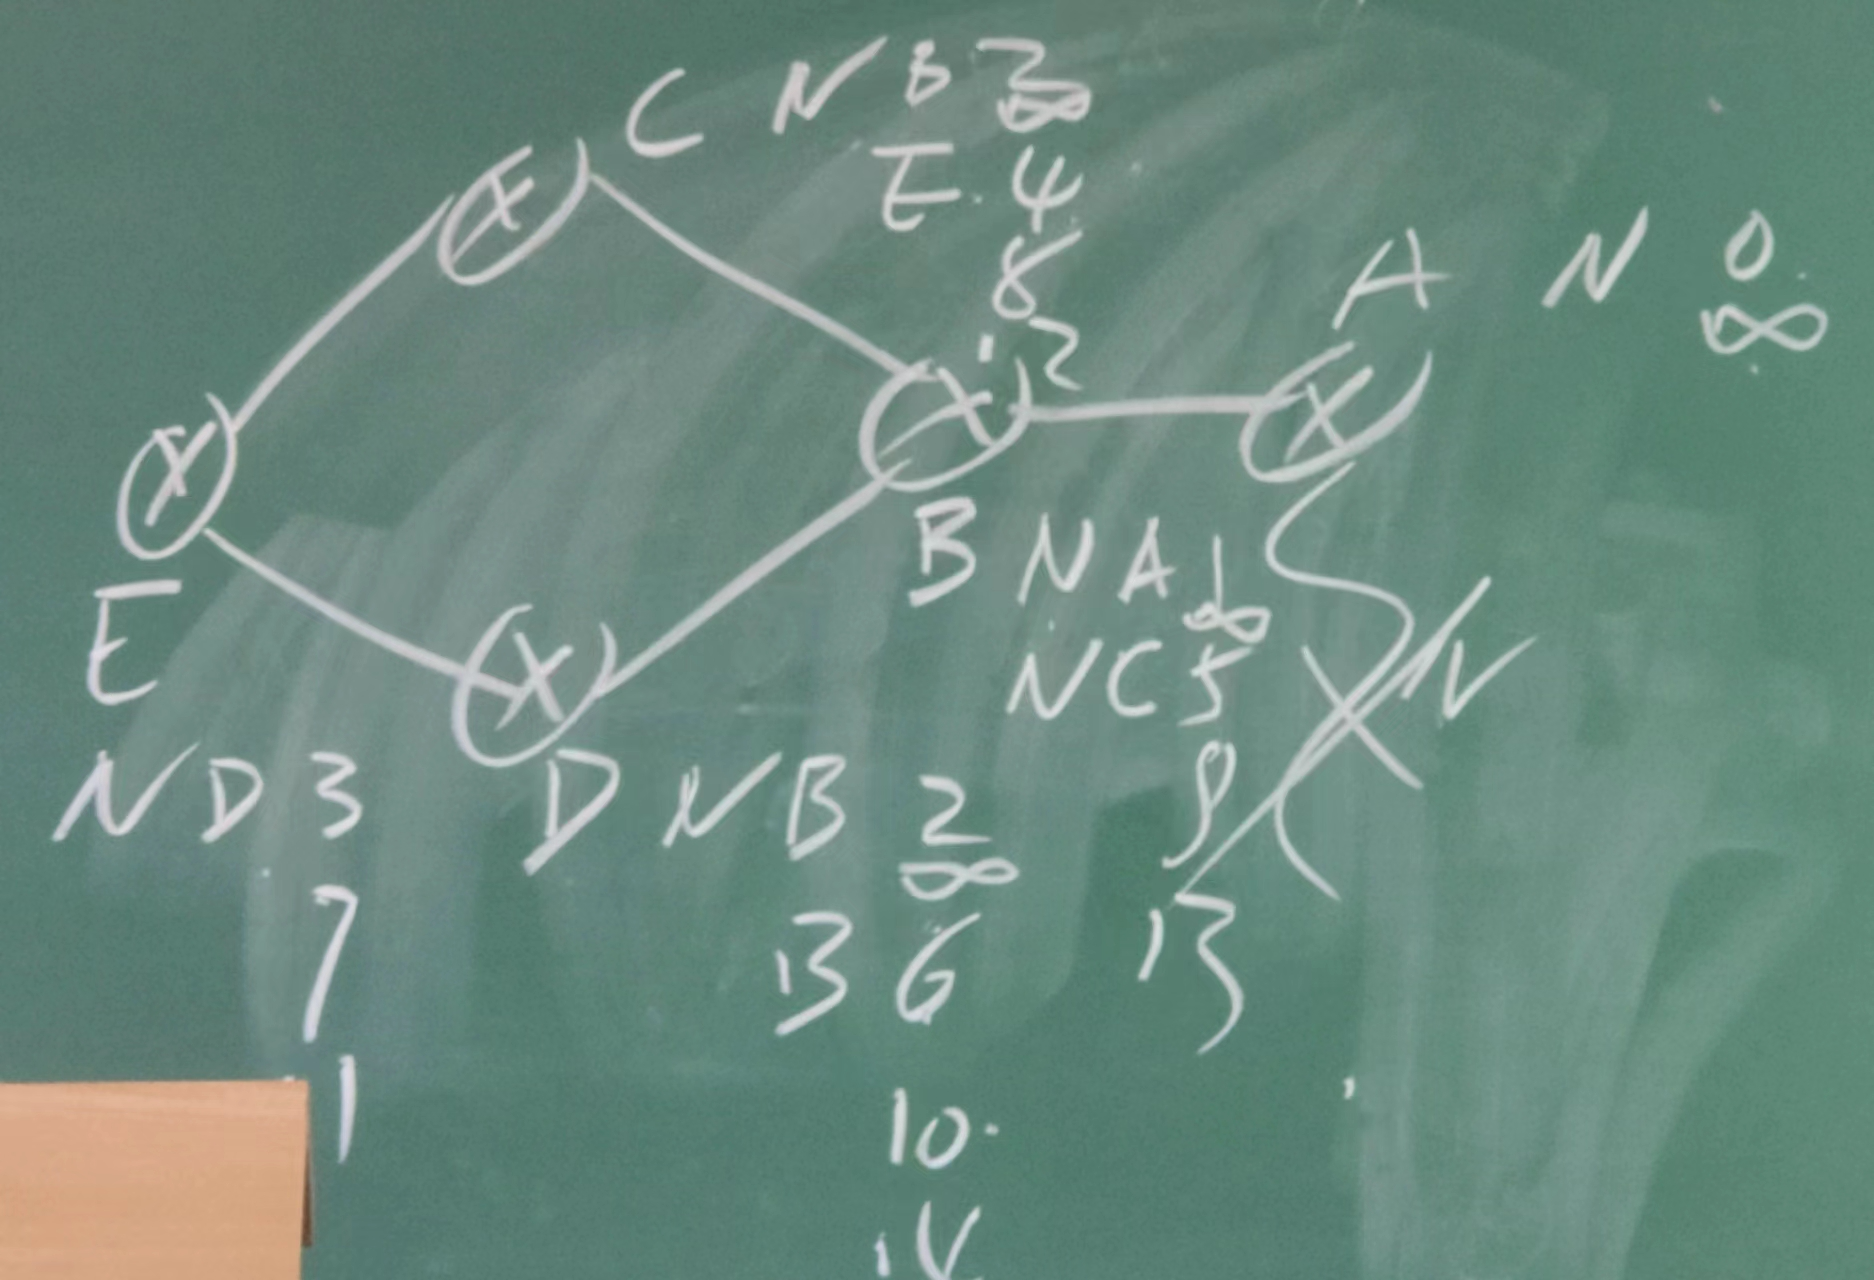 C N B 2
∞
E 4
8
12
A N 0
∞
B N A 1
∞
N C 5
9
13
N
E
N D 3
7
D N B 2
∞
B 6
10
14